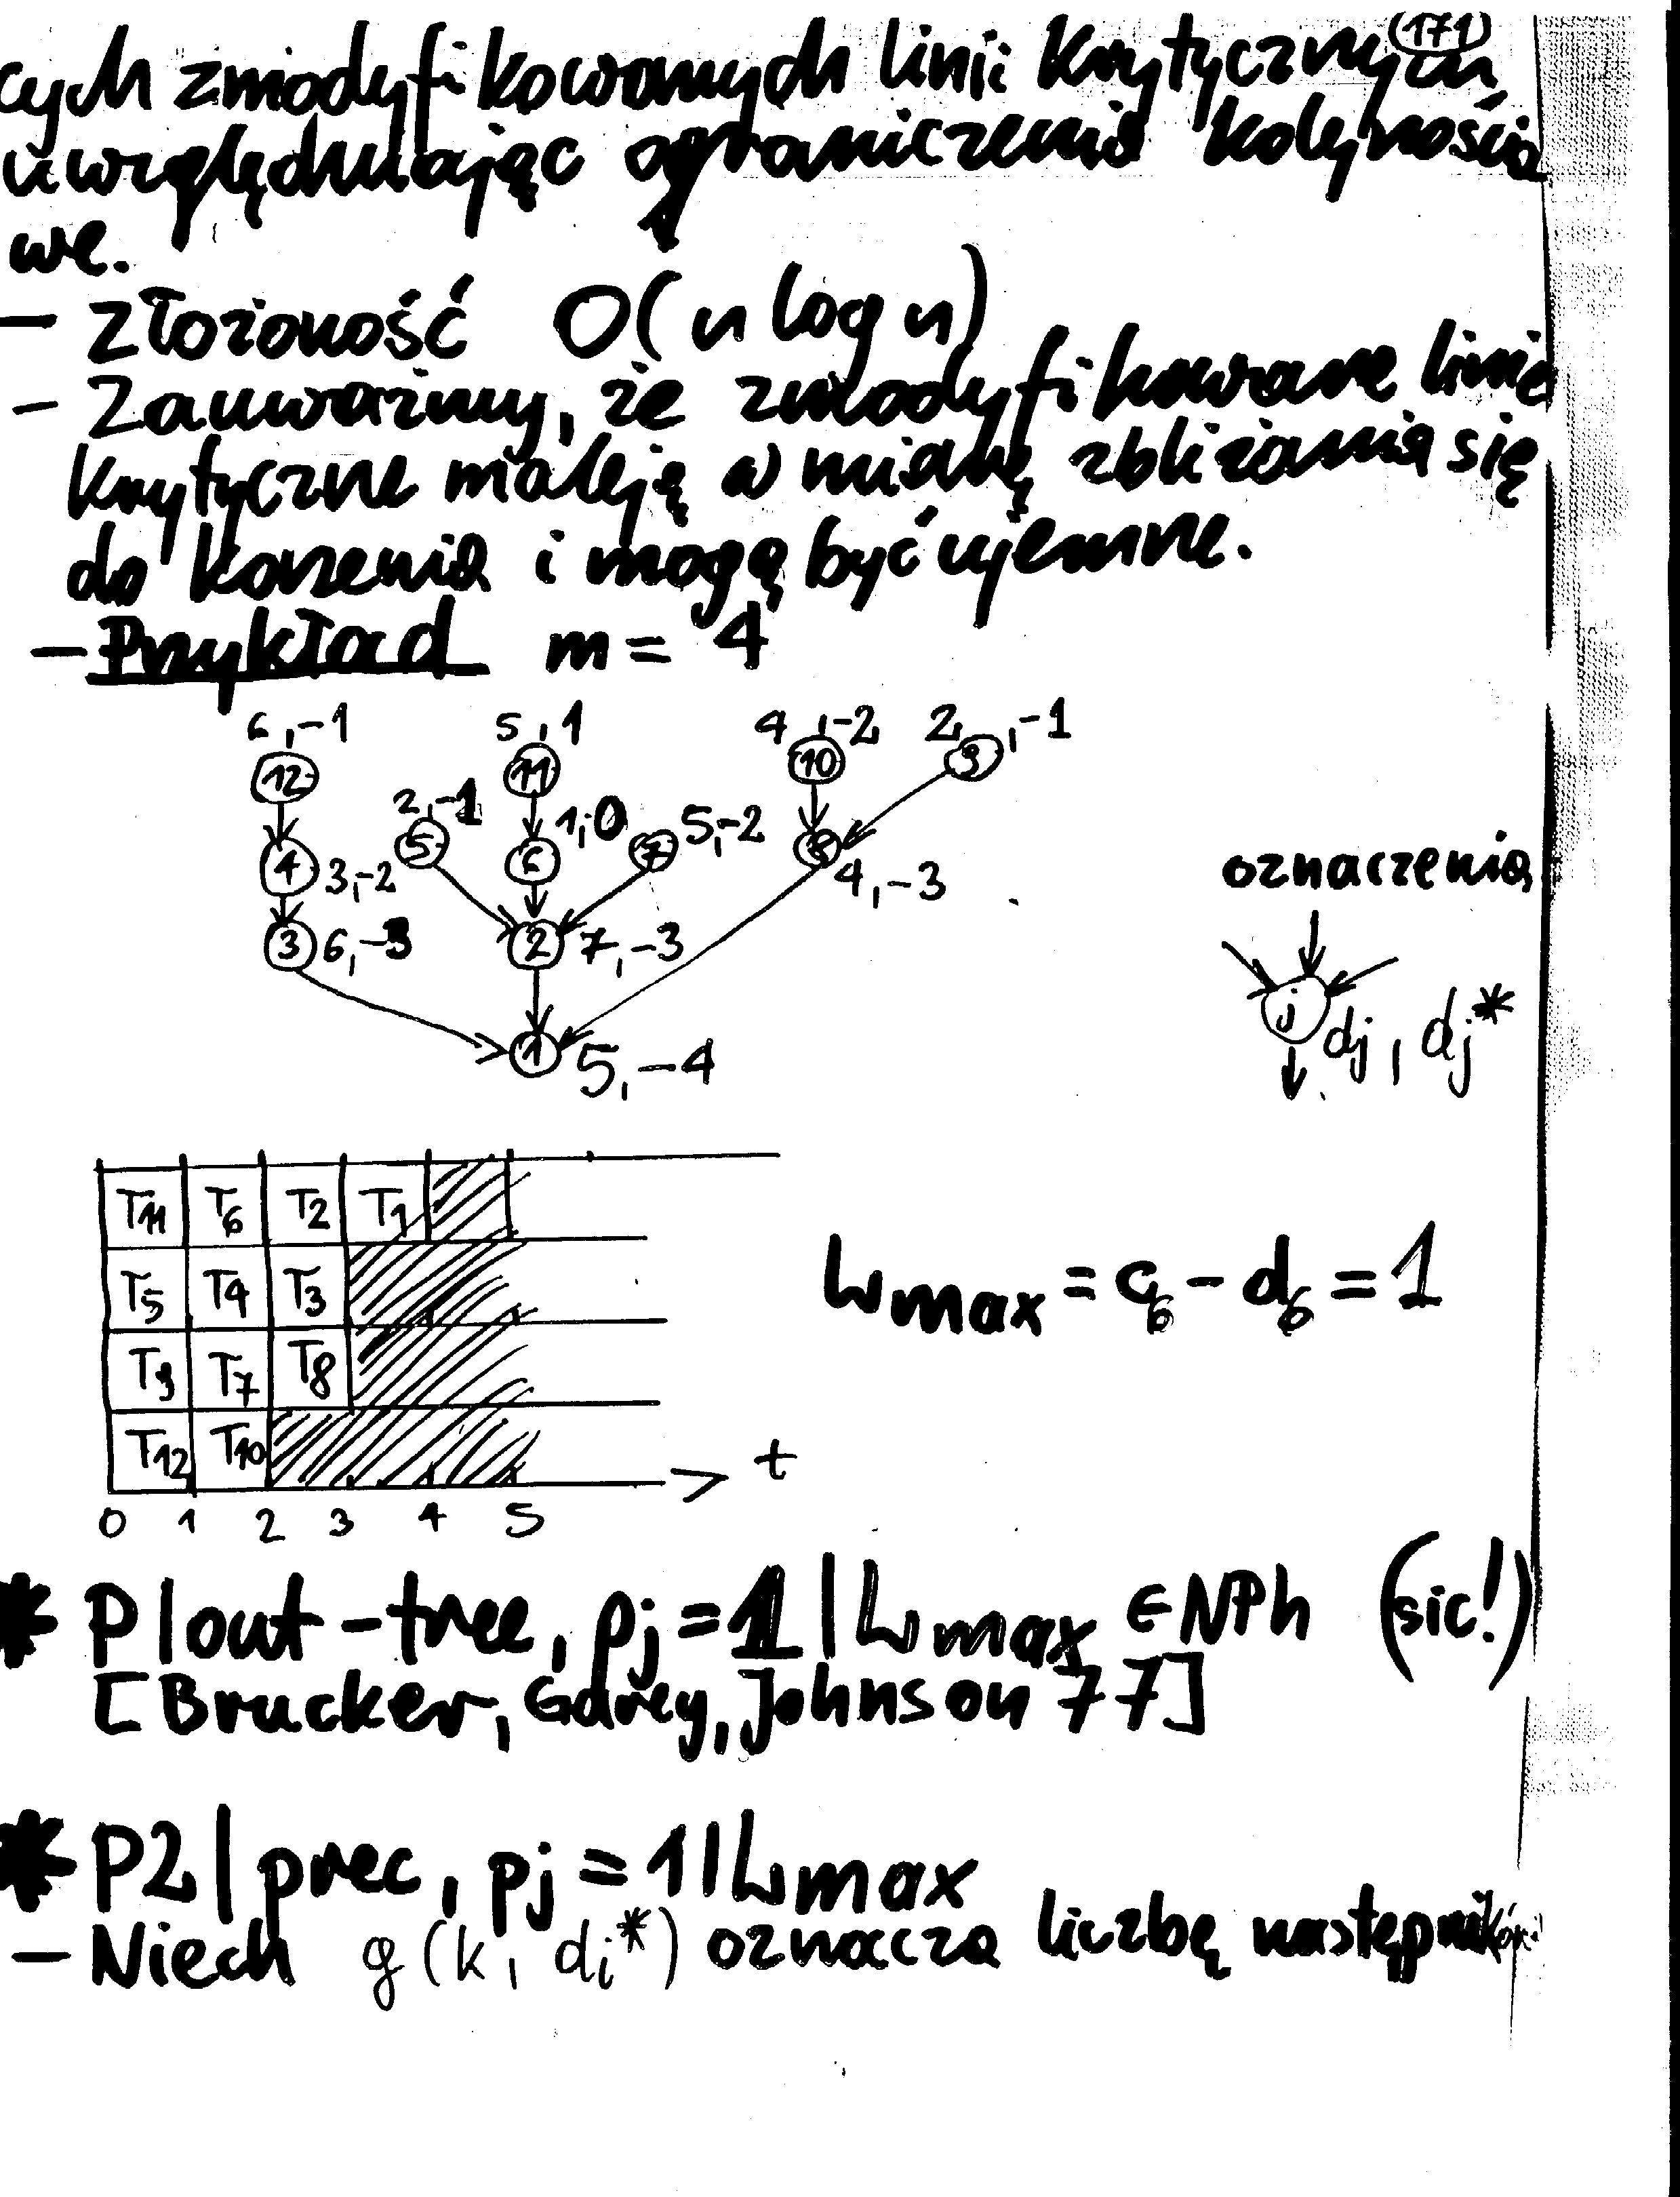 171
cych zmodyfikowanych linii krytycznych
uwzględniając ograniczenia kolejnościo
we.
- Złożoność O(n log n)
- Zauważmy, że zmodyfikowane linie
krytyczne maleją w miarę zbliżania się
do korzenia i mogą być ujemne.
- Przykład m = 4
6,-1 5,1 4,-2 2,-1
12 11 10 9
2,-1 1,0 5,-2
5 6 7 8
4 3,-2 4,-3
oznaczenia
3 6,-3 2 7,-3
j dj, dj*
1 5,-4
T11 T6 T2 T1
T5 T4 T3
Lmax = c6 - d6 = 1
T9 T7 T8
T12 T10
t
0 1 2 3 4 5
* P|out-tree, pj=1|Lmax ∈ NPh (sic!)
[Brucker, Garey, Johnson 77]
* P2|prec, pj=1|Lmax
- Niech g(k, di*) oznacza liczbę następników